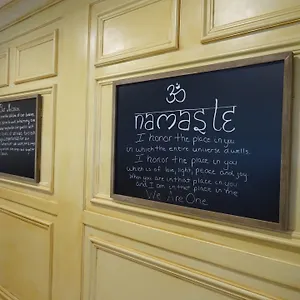 ॐ
namaste
I honor the place in you
in which the entire universe dwells.
I honor the place in you
which is of love, light, peace and joy.
When you are in that place in you
and I am in that place in me
We Are One.